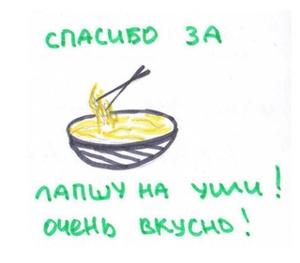 СПАСИБО ЗА
ЛАПШУ НА УШИ!
ОЧЕНЬ ВКУСНО!